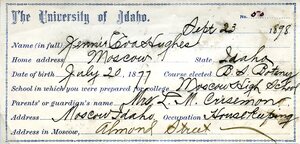 The University of Idaho.
No. 50
Sept 23 1898
Name (in full) Jennie Eva Hughes
Home address Moscow State Idaho
Date of birth July 20. 1877 Course elected B.S. Botany
School in which you were prepared for college Moscow High School
Parents' or guardian's name Mrs. L. M. Crisemond
Address Moscow Idaho Occupation Housekeeping
Address in Moscow, Almond Street